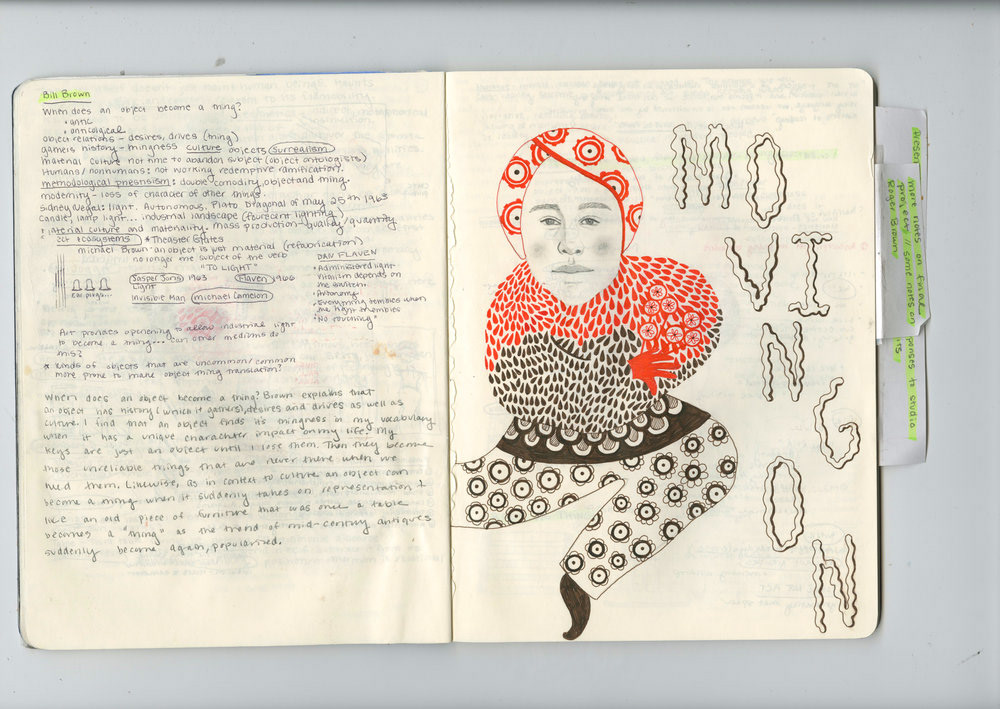 Bill Brown
When does an object become a thing?
• antic
• onticological
object relations – desires, drives (thing)
gamers history – thingness culture objects (Surrealism)
material culture not time to abandon subject (object ontologists)
Humans/nonhumans: not working redemptive ramification?
methodological : double comodity, object and thing.
modernity – loss of character of other things
light. Autonomous. Plato Dragonal of May 25th 1963
Candle, lamp light... industrial landscape (flourecent lighting)
material culture and materiality. Mass production – quality/quantity
ecosystems * Theaster Gates
michael Brown – an object is just material (refabrication)
no longer the subject of the verb
"TO LIGHT"
Jasper Jons 1963 Flaven 1966
Light
Invisible Man, michael Cameion
ear plugs...
DAN FLAVEN
• Administered light
• Vitalism depends on the switch
• Autonomy
• Everything trembles when the light trembles
• "No touching"
Art provides openening to allow industrial light
to become a thing... can other mediums do
this?
* Kinds of objects that are uncommon/common
more prone to make object thing translation?
When does an object become a thing? Brown explains that
an object has history (which it gamers), desires and drives as well as
culture. I find that an object finds its thingness in my vocabulary
when it has a unique charachter impact on my life. My
keys are just an object until I lose them. Then they become
those unreliable things that are never there when we
need them. Likewise, as in context to culture an object can
become a thing when it suddenly takes on representation
like an old piece of furniture that was once a table
becomes a "thing" as the trend of mid-century antiques
suddenly become again, popularized.
MO
VI
NG
ON
more notes on final
project // some notes on
Roger Brown
to studio